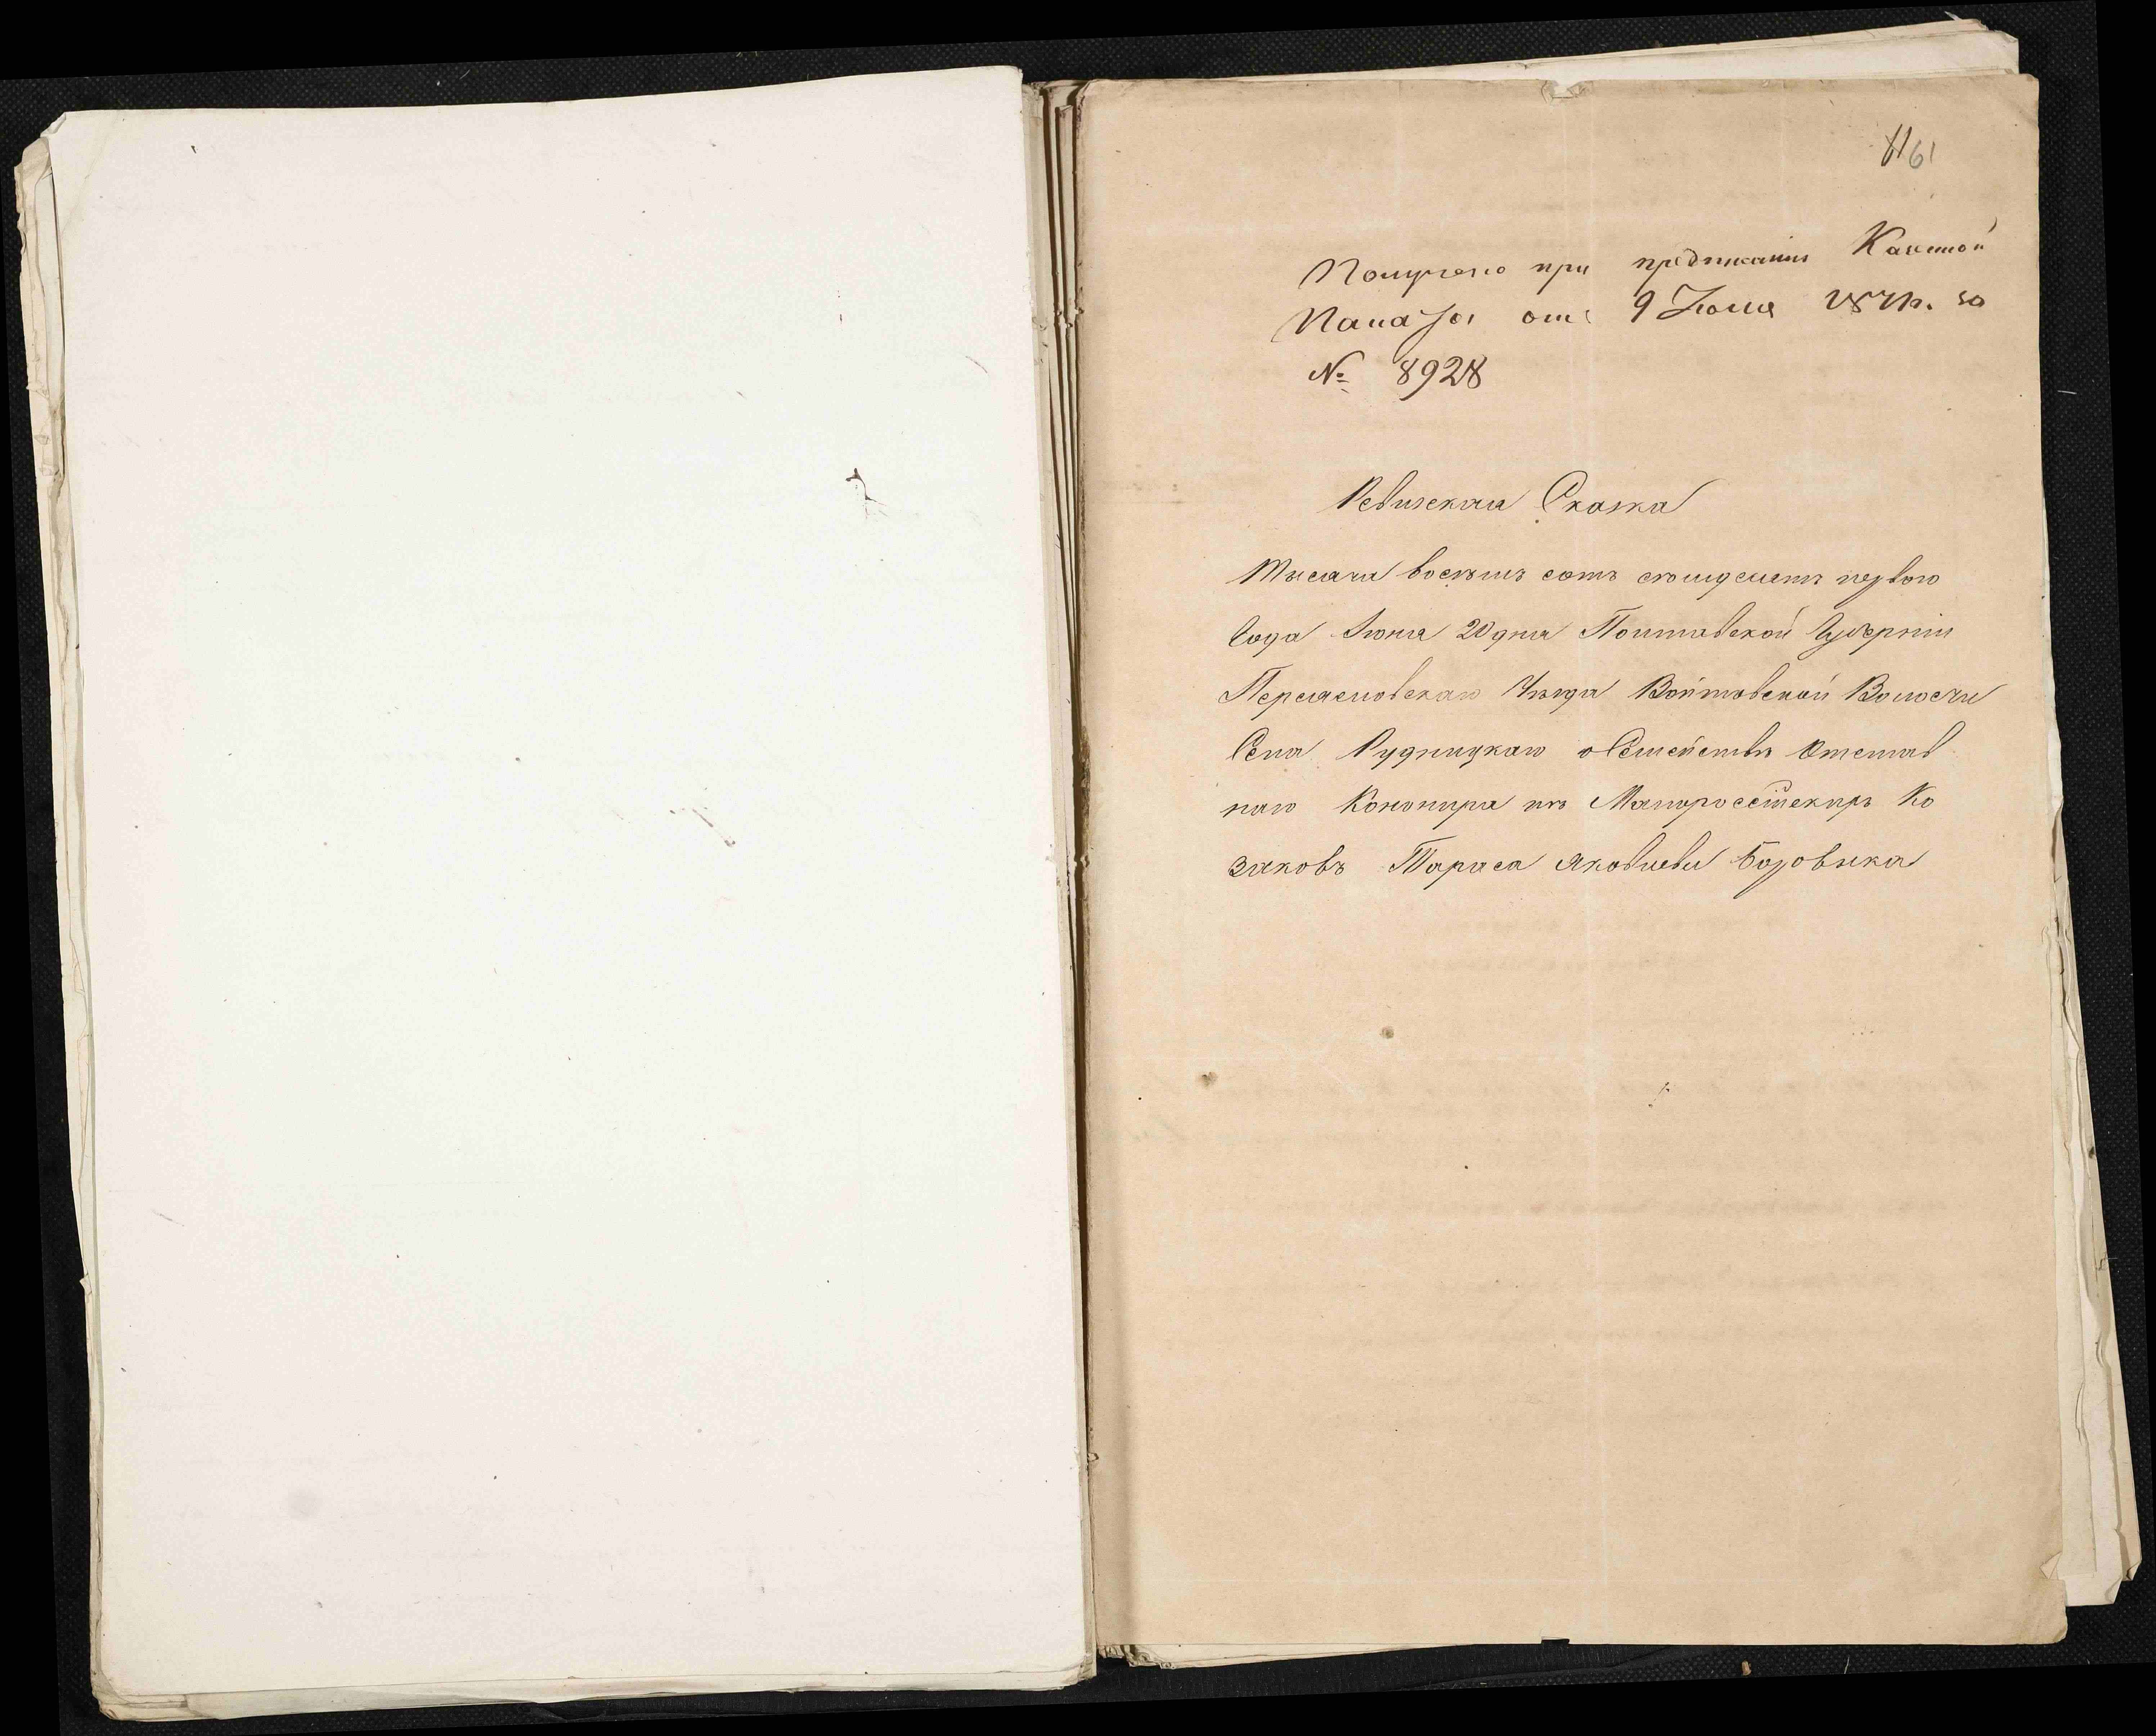 61
Получено при предписаніи Казенной
Палаты отъ 9 Іюля 1871. за
№ 8928
Ревизская Сказка
Тысяча восемъ сотъ семдесятъ первого
Года Іюня 20 дня Полтавской Губерніи
Переяславскаго Уѣзда Войтовской Волости
Села Рудницкаго о Семействѣ Отстав
наго Канонира изъ Малороссійскихъ Ко
заковъ Тараса Яковлева Боровика